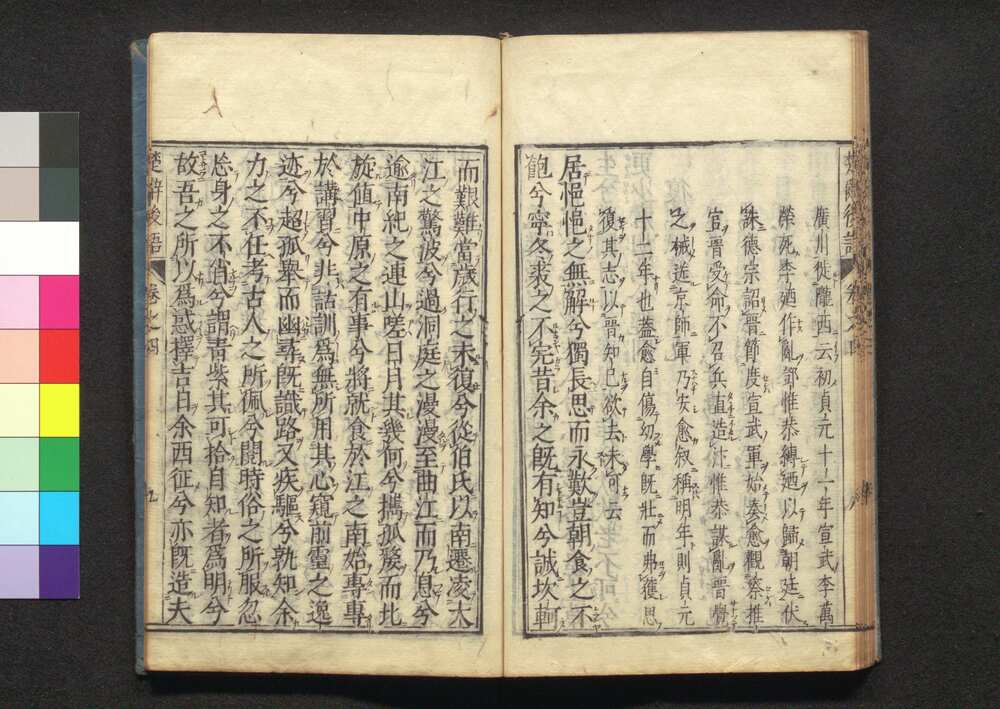 楚辭後語 卷之四 八
廣川徙隴西云初貞元十一年宣武李萬
榮死李廼作亂鄧惟恭縛廼以歸朝廷伏
誅德宗詔晉節度宣武軍始奏愈觀察推
官晉受命不召兵直造汴惟恭謀亂晉覺
之械送京師軍乃安愈叙稱明年則貞元
十二年也蓋愈自傷幼學既壯而弗獲思
復其志以晉知已欲去未可云
居悒悒之無解兮獨長思而永歎豈朝食之不
飽兮寧冬裘之不完昔余之既有知兮誠坎軻
而艱難當歲行之未復兮從伯氏以南遷凌大
江之驚波兮過洞庭之漫漫至曲江而乃息兮
逾南紀之連山嗟日月其幾何兮攜孤嫠而北
旋值中原之有事兮將就食於江之南始專專
於講習兮非詁訓爲無所用其心窺前靈之逸
迹兮超孤舉而幽尋既識路又疾驅兮孰知余
力之不任考古人之所佩兮閱時俗之所服忽
忘身之不肖兮謂青紫其可拾自知者爲明兮
故吾之所以爲惑擇吉日余西征兮亦既造夫
楚辭後語 卷之四 九